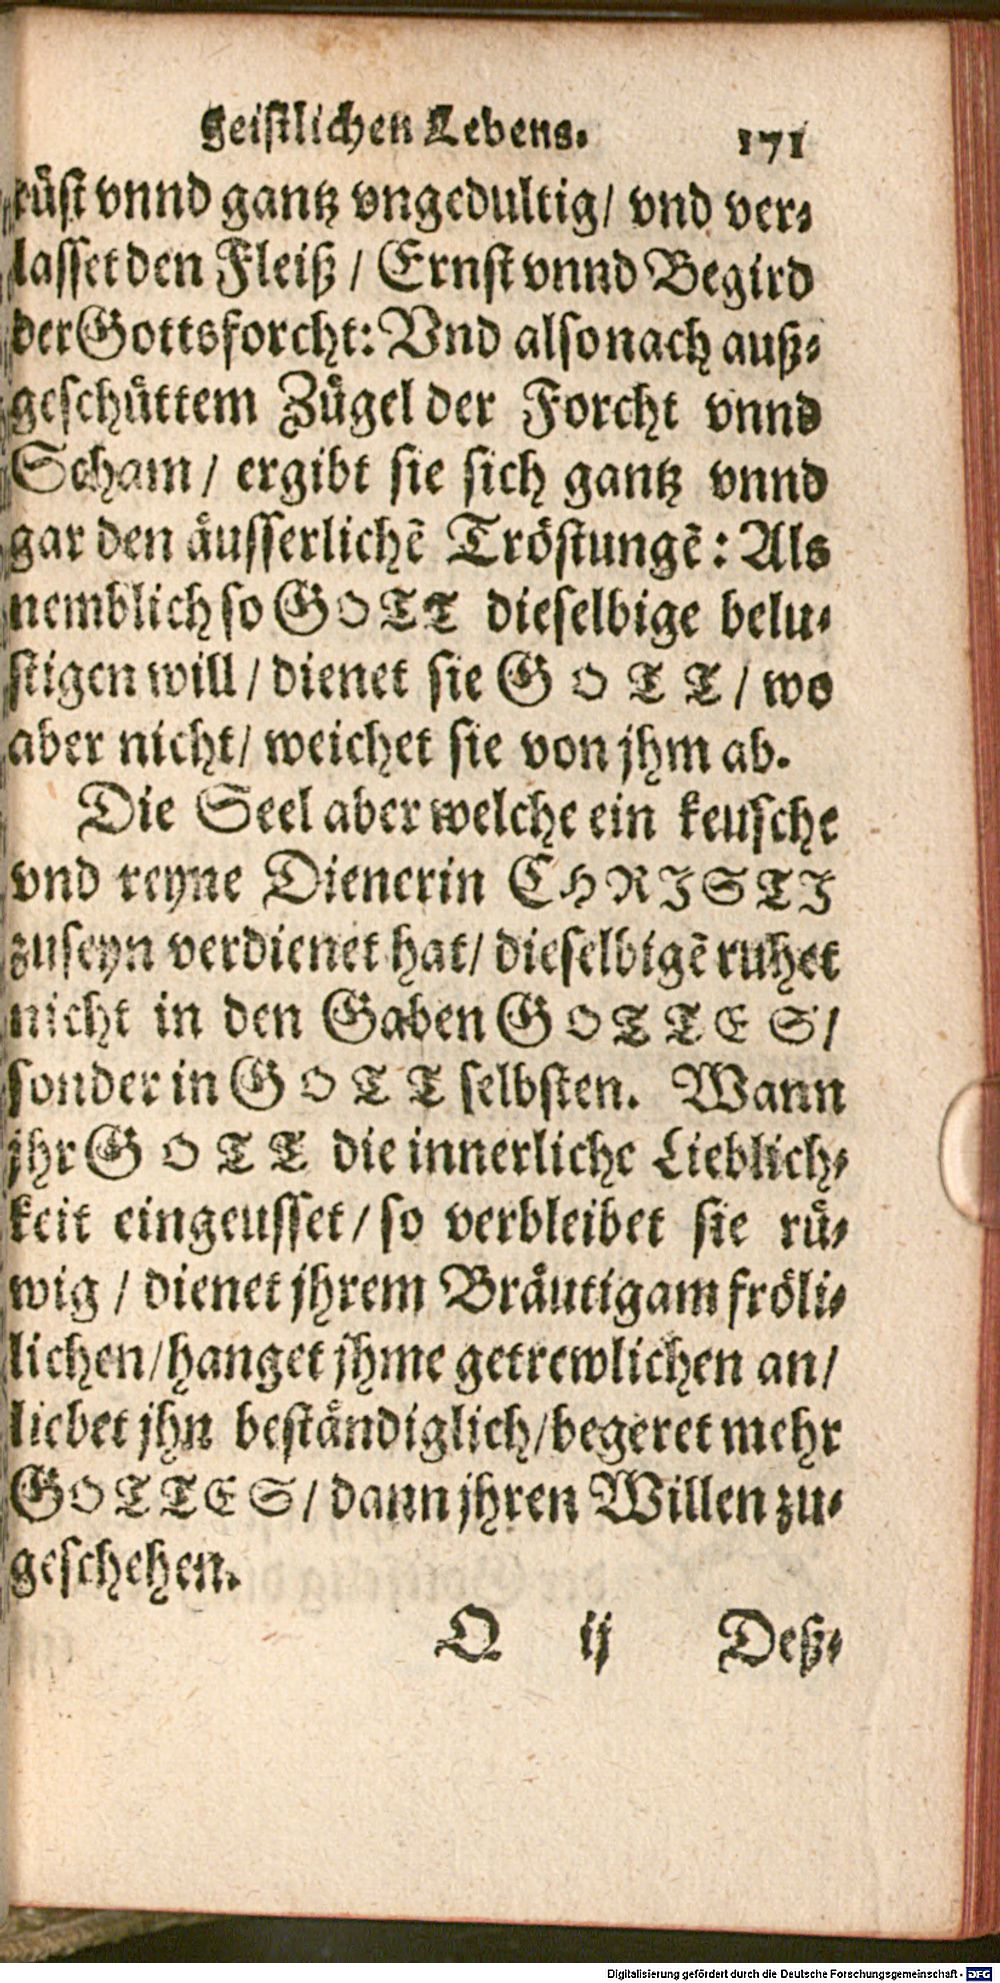 geistlichen Lebens. 171
rüst vnnd gantz vngedultig/ vnd ver⸗
lasset den Fleiß / Ernst vnnd Begird
der Gottsforcht: Vnd also nach auß⸗
geschüttem Zügel der Forcht vnnd
Scham / ergibt sie sich gantz vnnd
gar den äusserlichē Tröstungē : Als
nemblich so GOTT dieselbige belu⸗
stigen will / dienet sie GOTT / wo
aber nicht/ weichet sie von jhm ab.
Die Seel aber welche ein keusche
vnd reyne Dienerin CHRISTI
zuseyn verdienet hat/ dieselbigē ruhet
nicht in den Gaben GOTTES/
sonder in GOTT selbsten. Wann
jhr GOTT die innerliche Lieblich⸗
keit eingeusset / so verbleibet sie rü⸗
wig / dienet jhrem Bräutigam fröli⸗
lichen/hanget jhme getrewlichen an/
liebet jhn beständiglich/begeret mehr
GOTTES / dann jhren Willen zu⸗
geschehen.
Q ij Deß⸗
Digitalisierung gefördert durch die Deutsche Forschungsgemeinschaft - DFG